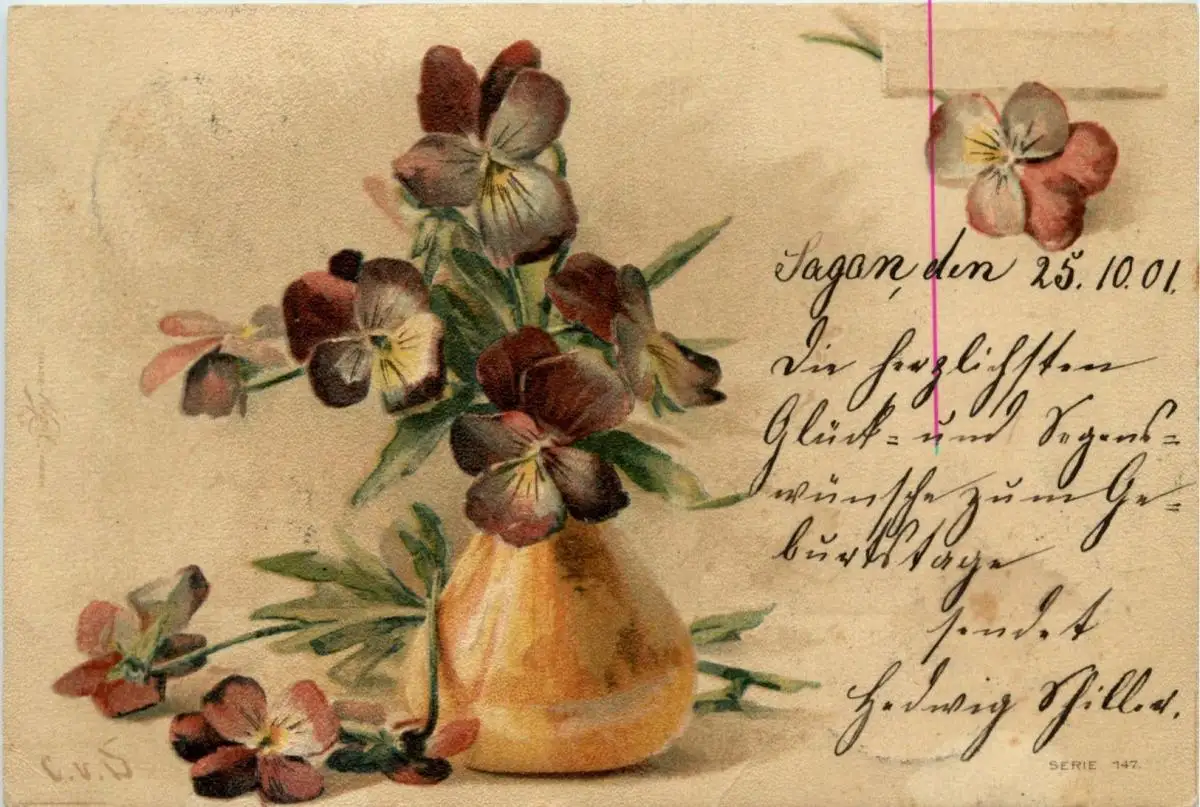 Sagan, den 25.10.01.
Die herzlichsten
Glück- und Segens-
wünsche zum Ge-
burtstage
sendet
Hedwig Schiller.
SERIE 147.
C.v.S